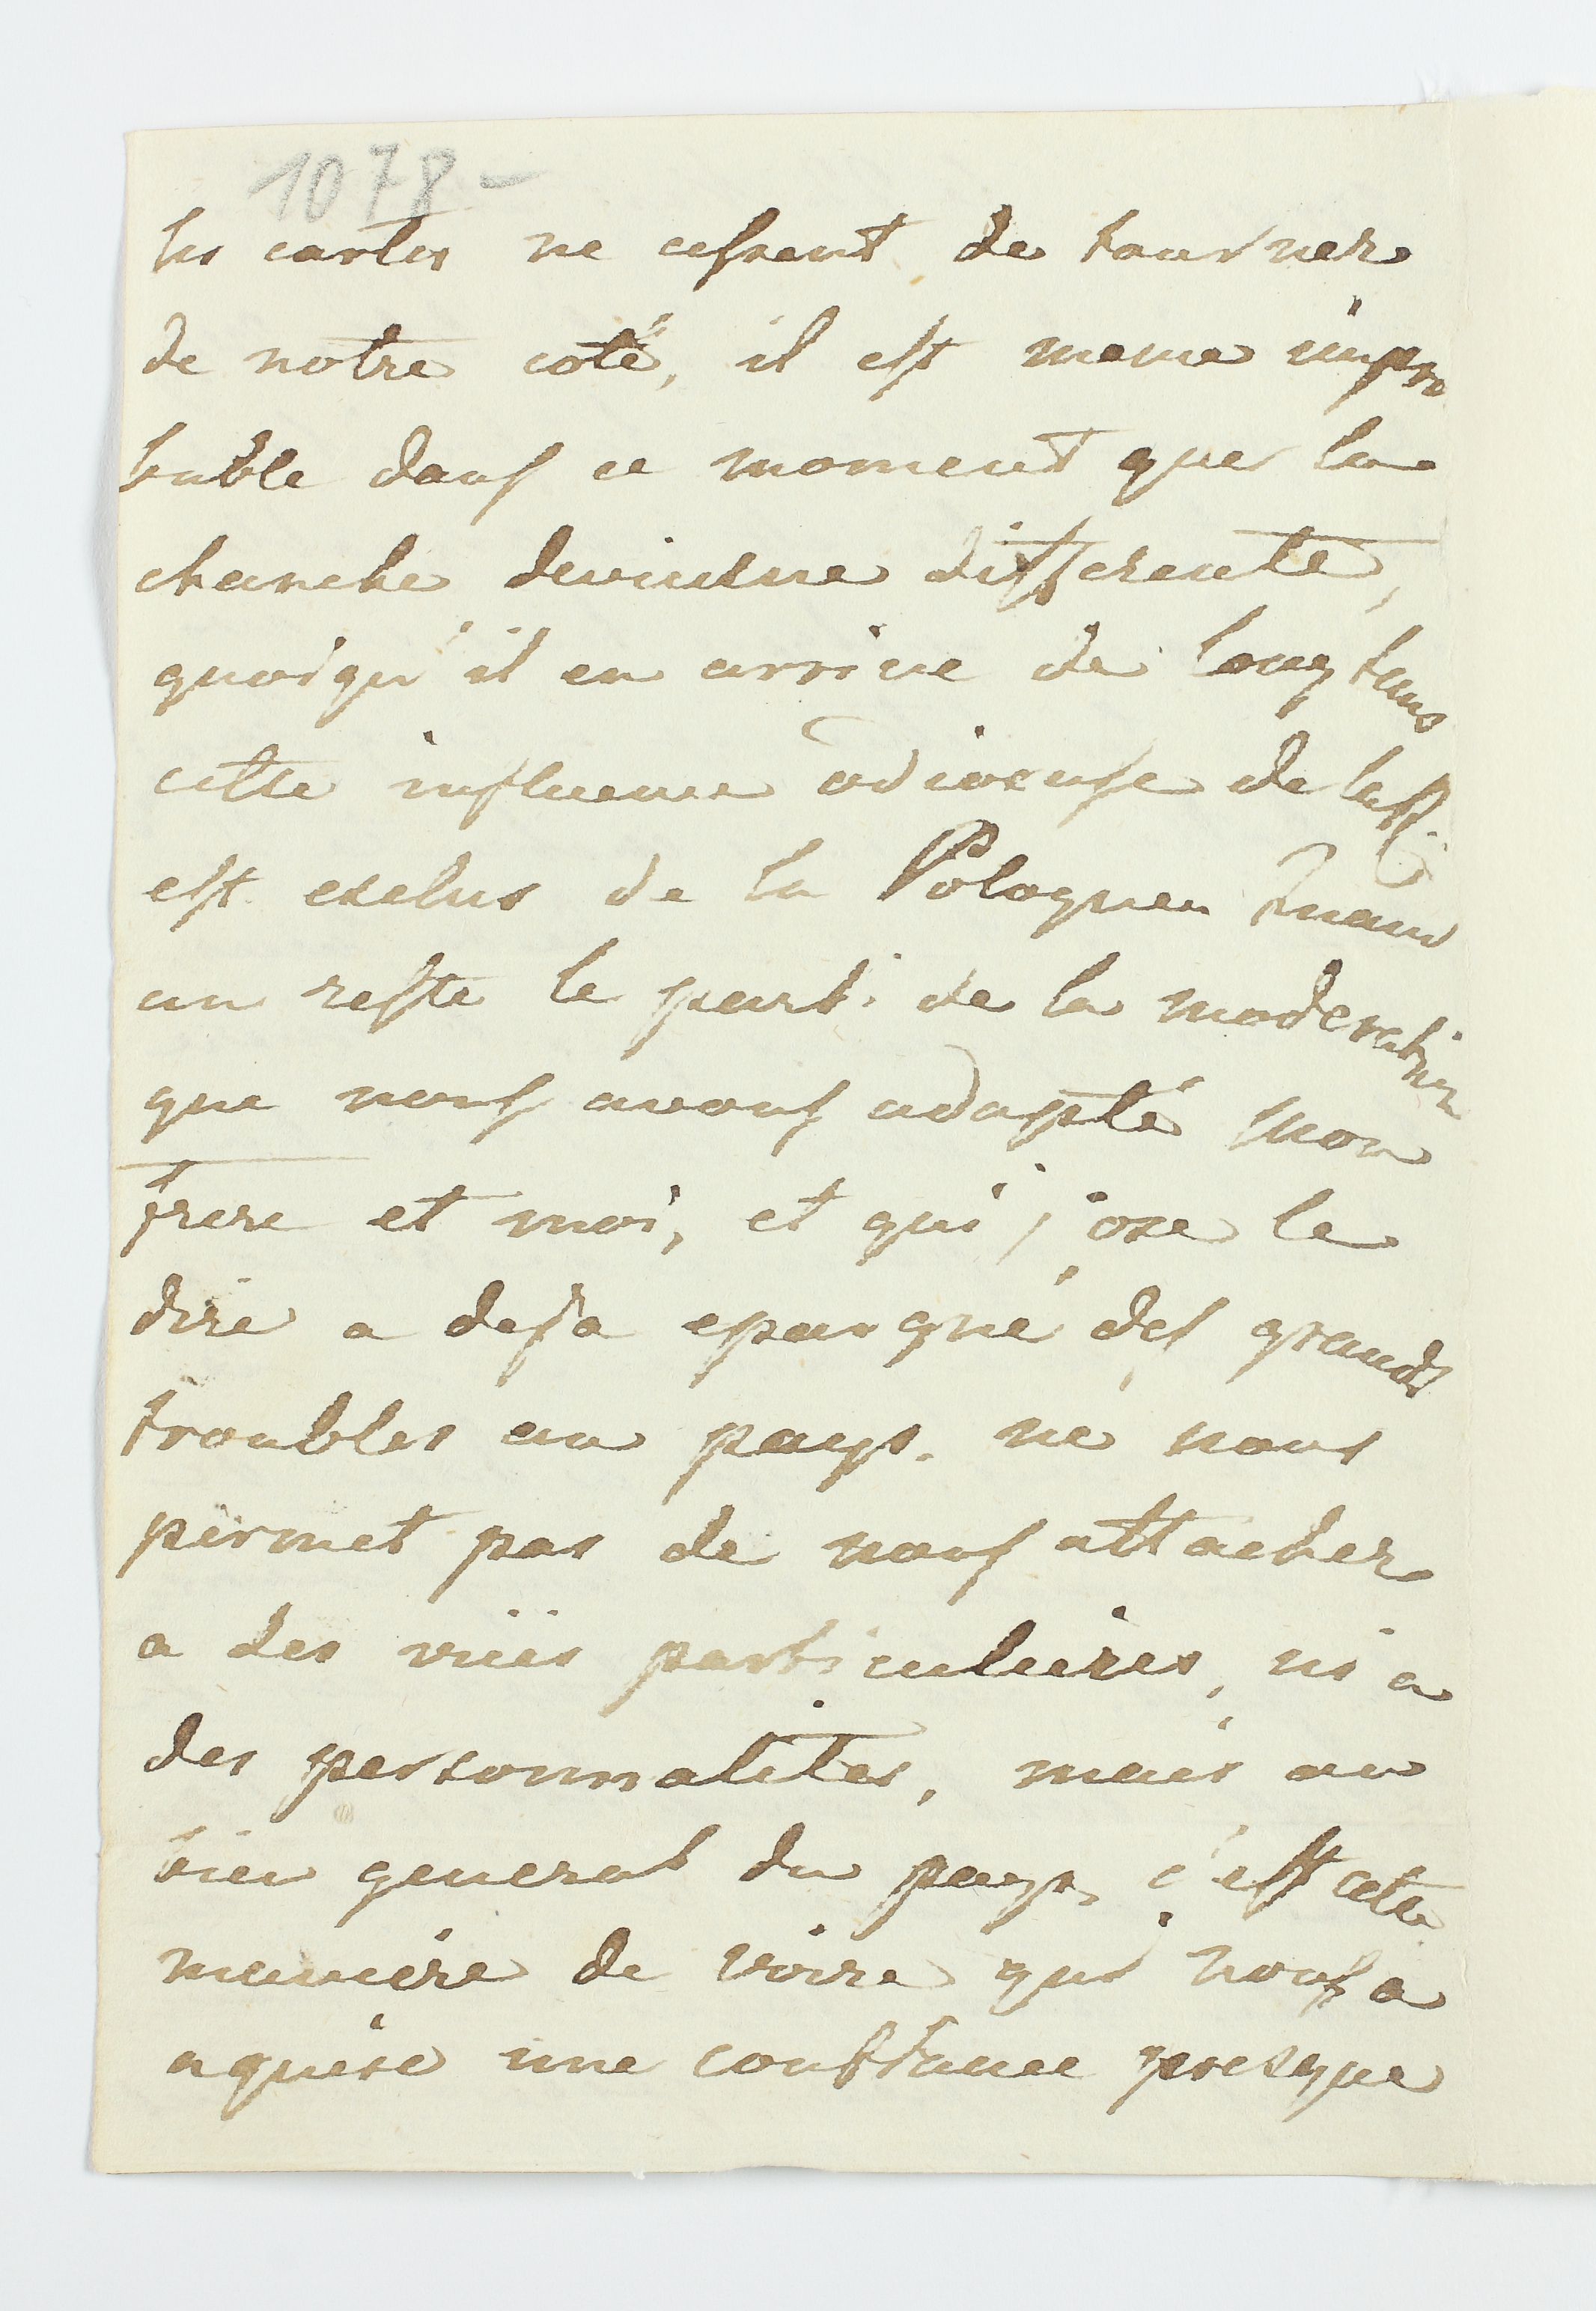 1078-
les cartes ne cessent de tourner
de notre coté, il est meme impro
bable dans ce moment que la
chanche devienne differente,
quoiqu'il en arrive de longtems
cette influence odieuse de la R.
est exclus de la Pologne. Quand
au reste le parti de la moderation
que nous avons adapté mon
frere et moi, et qui j'ose le
dire a deja epargné des grands
troubles au pays. ne nous
permet pas de nous attacher
a des vuës particulieres, ni a
des personnalites, mais au
bien general du pays, c'est cette
maniere de voire qui nous a
aquise une confiance presque